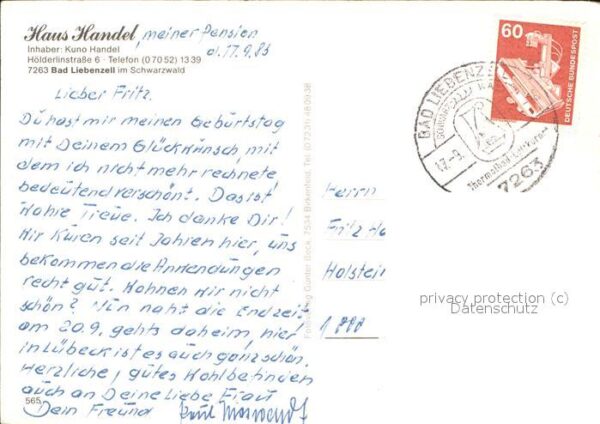 Haus Handel, meiner Pension
Inhaber: Kuno Handel d. 17.9.83
Hölderlinstraße 6 · Telefon (0 70 52) 13 39
7263 Bad Liebenzell im Schwarzwald
Lieber Fritz.
Du hast mir meinen Geburtstag
mit Deinem Glückwünsch, mit
dem ich nicht mehr rechnete
bedeutend verschönt. Das ist
Wahre Treue. Ich danke Dir!
Wir Kuren seit Jahren hier, uns
bekommen die Anwendungen
recht gut. Wohnen wir nicht
schön? Nun naht die Endzeit
am 20.9. gehts daheim, hier
in Lübeck ist es auch ganz schön.
Herzliche, gutes Wohlbefinden
auch an Deine liebe Frau
Dein Freund
565
7534 Birkenfeld, Tel.
Herrn
Fritz Ho
Holstein
1000
60
DEUTSCHE BUNDESPOST
BAD LIEBENZ
17.-9.
Thermalbad
7263
privacy protection (c)
Datenschutz